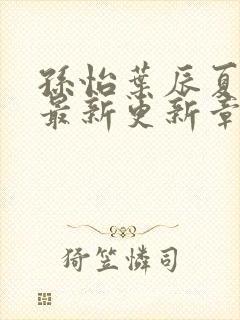 孫怡葉辰夏
最新更新章
猗笠憐司